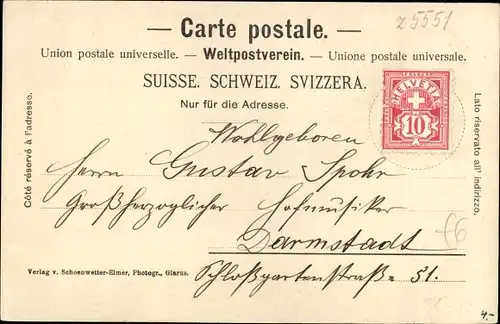 z5551
— Carte postale. —
Union postale universelle. — Weltpostverein. — Unione postale universale.
SUISSE. SCHWEIZ. SVIZZERA.
Nur für die Adresse.
Côté réservé à l'adresse.
Lato riservato all' indirizzo.
HELVETIA
10
Wohlgeboren
Herrn Gustav Spohr
Großherzoglicher Hofmusiker
Darmstadt
Schloßgartenstraße 51.
f6
Verlag v. Schoenwetter-Elmer, Photogr., Glarus.
4.-